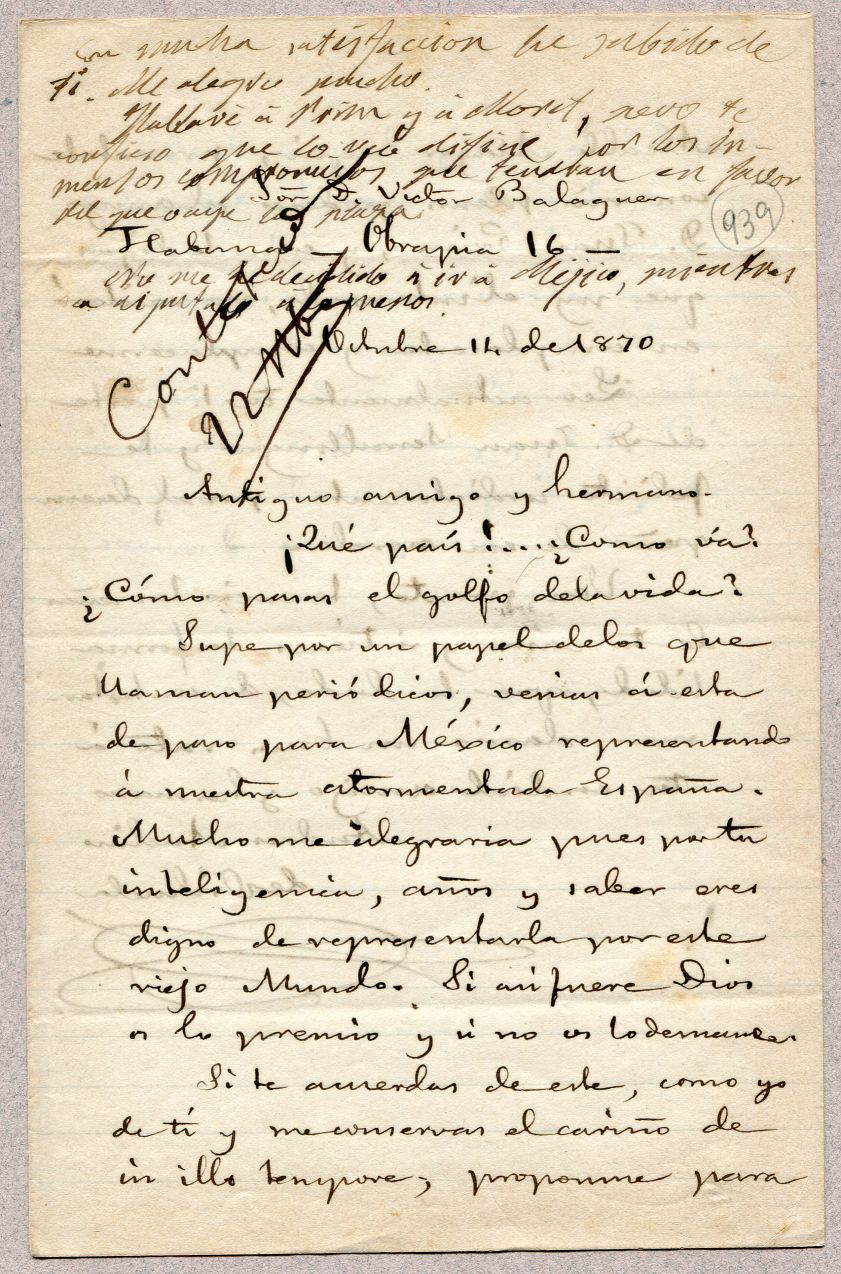 Con mucha satisfaccion he sabido de
ti. Me alegro mucho.
Hablaré á Prim y á Moret, pero te
confieso que lo veo dificil, por los in-
mensos compromisos que tendran en favor
del que ocupe la plaza.
Sõr D. Victor Balaguer
939
Habana Obrapia 16
No me he decidido á ir á Mejico, mientras
sea diputado á lo menos.
Octubre 14 de 1870
Contestada
22 Nbre
Antiguo amigo y hermano.
¡Qué país!.... ¿Como vá?
¿Cómo pasas el golfo de la vida?
Supe por un papel de los que
llaman periódicos, venias á esta
de paso para México representando
á nuestra atormentada España.
Mucho me alegraria pues por tu
inteligencia, años y saber eres
digno de representarla por este
viejo Mundo. Si asi fuere Dios
os lo premio y si no os lo demande.
Si te acuerdas de este, como yo
de tí y me conservas el cariño de
in illo tempore, proponme para